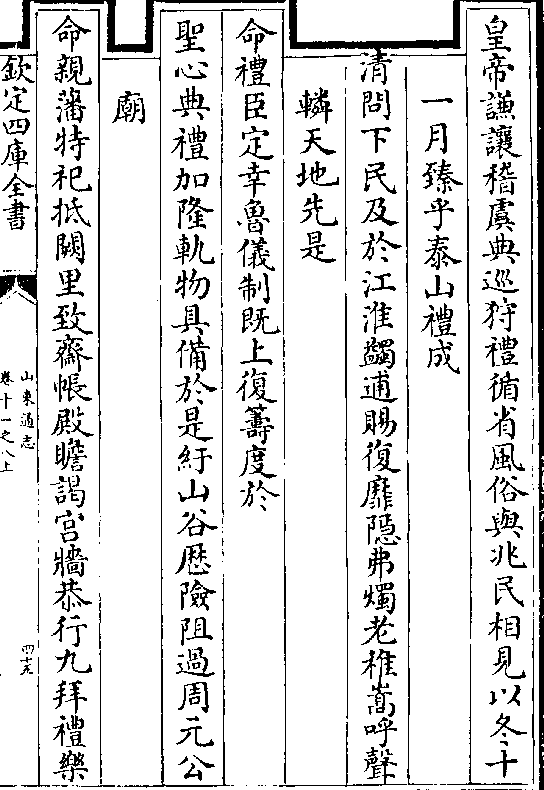 皇帝謙讓稽虞典巡狩禮循省風俗與兆民相見以冬十
一月臻乎泰山禮成
清問下民及於江淮蠲逋賜復靡隠弗燭老稚嵩呼聲
轔天地先是
命禮臣定幸魯儀制既上復籌度於
聖心典禮加隆軌物具備於是紆山谷厯險阻過周元公
廟
命親藩特祀抵闕里致齋帳殿瞻謁宫牆恭行九拜禮樂
欽定四庫全書
山東通志
卷十一之八上
四十九